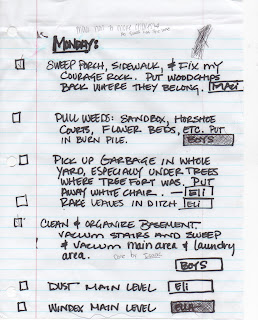 Monday:
Sweep porch, sidewalk, & fix my
courage rock. Put woodchips
back where they belong. Maci
Pull weeds: sandbox, horshoe
courts, flower beds, etc. Put
in burn pile. Boys
Pick up garbage in whole
yard, especially under trees
where tree fort was. Put
away white chair. - Eli
Rake leaves in ditch Eli
Clean & organize basement.
Vacuum stairs and sweep
& vacuum main area & laundry
area.
Boys
Dust main level Eli
Windex main level Ella